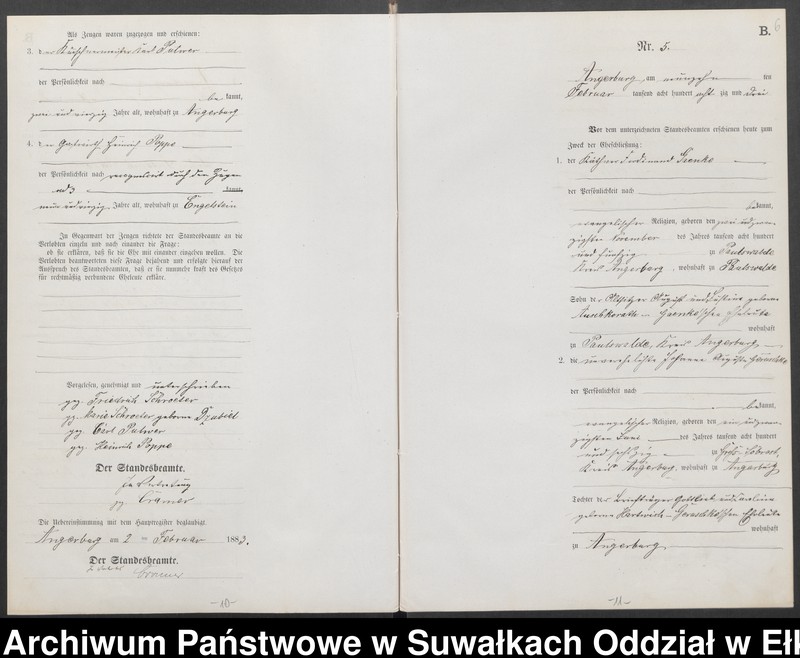 Als Zeugen waren zugezogen und erschienen:
3. der Karl Pulwer
der Persönlichkeit nach
be kannt,
Jahre alt, wohnhaft zu Angerburg
4. der Gastwirth Heinrich Poppe
der Persönlichkeit nach durch den
kannt,
Jahre alt, wohnhaft zu Engelstein
In Gegenwart der Zeugen richtete der Standesbeamte an die
Verlobten einzeln und nach einander die Frage:
ob sie erklären, daß sie die Ehe mit einander eingehen wollen. Die
Verlobten beantworteten diese Frage bejahend und erfolgte hierauf der
Ausspruch des Standesbeamten, daß er sie nunmehr kraft des Gesetzes
für rechtmäßig verbundene Eheleute erkläre.
Vorgelesen, genehmigt und unterschrieben
gez. Friedrich Schroeter
gez. Marie Schroeter geborne
gez. Carl Pulwer
gez. Heinrich Poppe
Der Standesbeamte.
In Vertretung
gez. Cramer
Die Uebereinstimmung mit dem Hauptregister beglaubigt
Angerburg am 2 ten Februar 1883.
Der Standesbeamte.
Cramer
-10-
B.
6
Nr. 5.
Angerburg, am neunzehn ten
Februar tausend acht hundert acht zig und drei
Vor dem unterzeichneten Standesbeamten erschienen heute zum
Zweck der Eheschließung:
1. der Ferdinand
der Persönlichkeit nach
bekannt,
evangelischer Religion, geboren den zwei und zwan-
zigsten November des Jahres tausend acht hundert
und fünfzig zu Paulswalde
Kreis Angerburg, wohnhaft zu Paulswalde
Sohn der August und geborne
Eheleute
wohnhaft
zu Paulswalde, Kreis Angerburg
2. die unverehelichte Johanne Auguste
der Persönlichkeit nach
bekannt,
evangelischer Religion, geboren den ein und zwan-
zigsten Juni des Jahres tausend acht hundert
und sechzig zu
Kreis Angerburg, wohnhaft zu Angerburg
Tochter der Briefträger Gottlieb und
geborne Eheleute
wohnhaft
zu Angerburg
-11-
Archiwum Państwowe w Suwałkach Oddział w Ełk